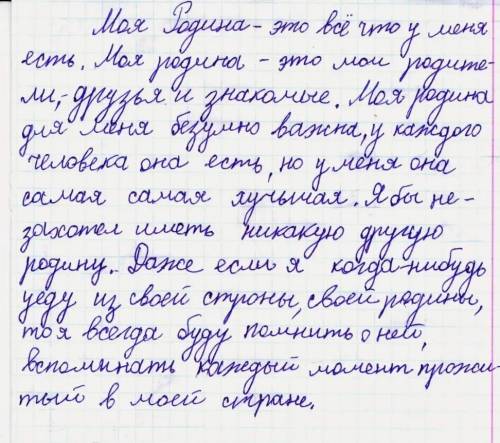 Моя Родина - это всё что у меня
есть. Моя родина - это мои родите-
ли,- друзья и знакомые. Моя родина
для меня безумно важна, у каждого
человека она есть, но у меня она
самая самая лучшая. Я бы не-
захотел иметь никакую другую
родину. Даже если я когда-нибудь
уеду из своей строны, своей родины,
то я всегда буду помнить о ней,
вспоминать каждый момент прожи-
тый в моей стране.